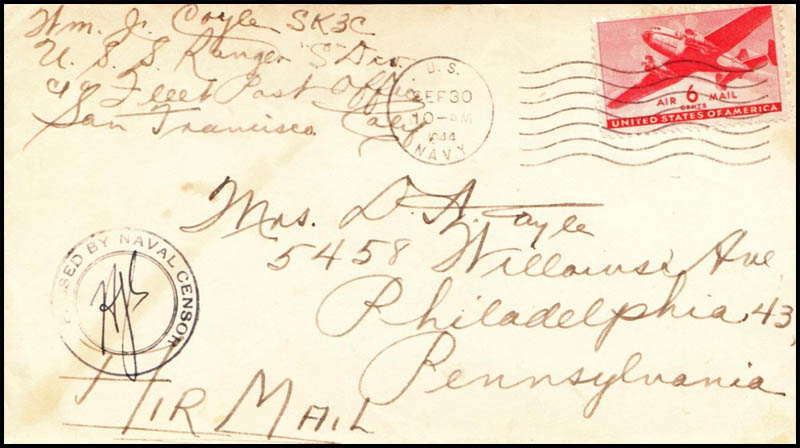 Wm. J. Coyle SK3C
U. S. S. Ranger "S" Div.
c/o Fleet Post Office
San Francisco Calif.
U. S.
SEP 30
10-AM
1944
NAVY
AIR 6 MAIL
CENTS
UNITED STATES OF AMERICA
Mrs. D. A. Coyle
5458 Willows Ave
Philadelphia 43,
Pennsylvania
PASSED BY NAVAL CENSOR
AIR MAIL